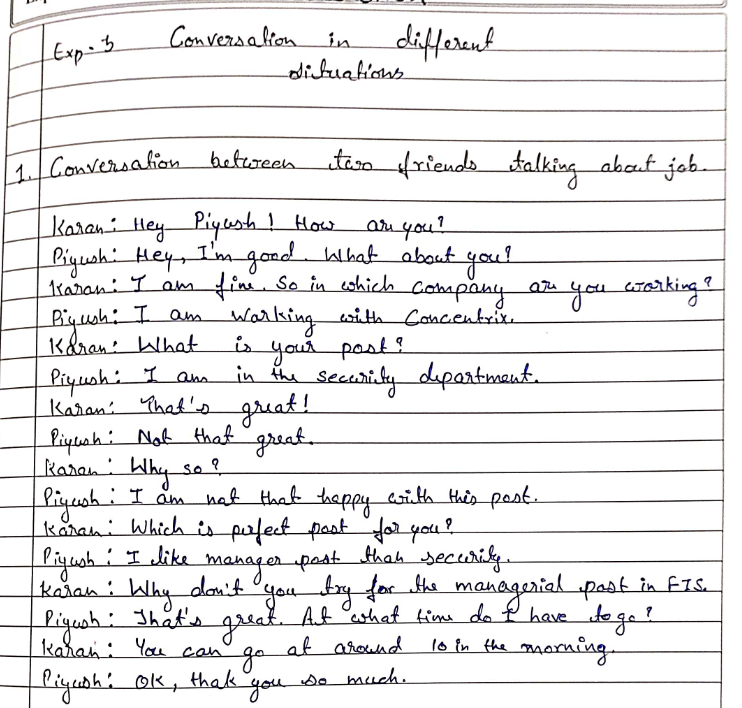 Exp-3 Conversation in different
situations
1. Conversation between two friends talking about job.
Karan: Hey Piyush! How are you?
Piyush: Hey, I'm good. What about you?
Karan: I am fine. So in which company are you working?
Piyush: I am working with Concentrix.
Karan: What is your post?
Piyush: I am in the security department.
Karan: That's great!
Piyush: Not that great.
Karan: Why so?
Piyush: I am not that happy with this post.
Karan: Which is perfect post for you?
Piyush: I like manager post than security.
Karan: Why don't you try for the managerial post in FIS.
Piyush: That's great. At what time do I have to go?
Karan: You can go at around 10 in the morning.
Piyush: OK, thak you so much.